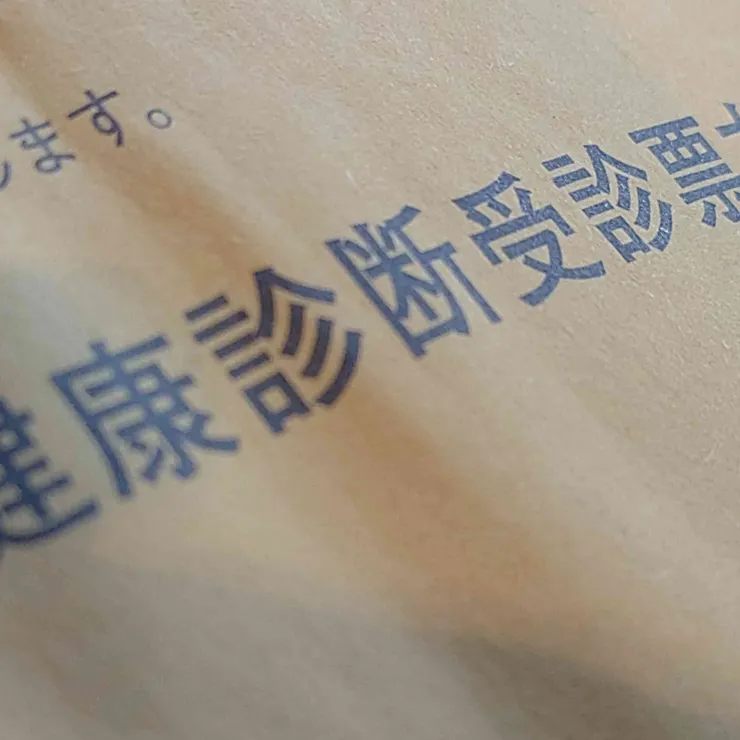 します。
健康診断受診票